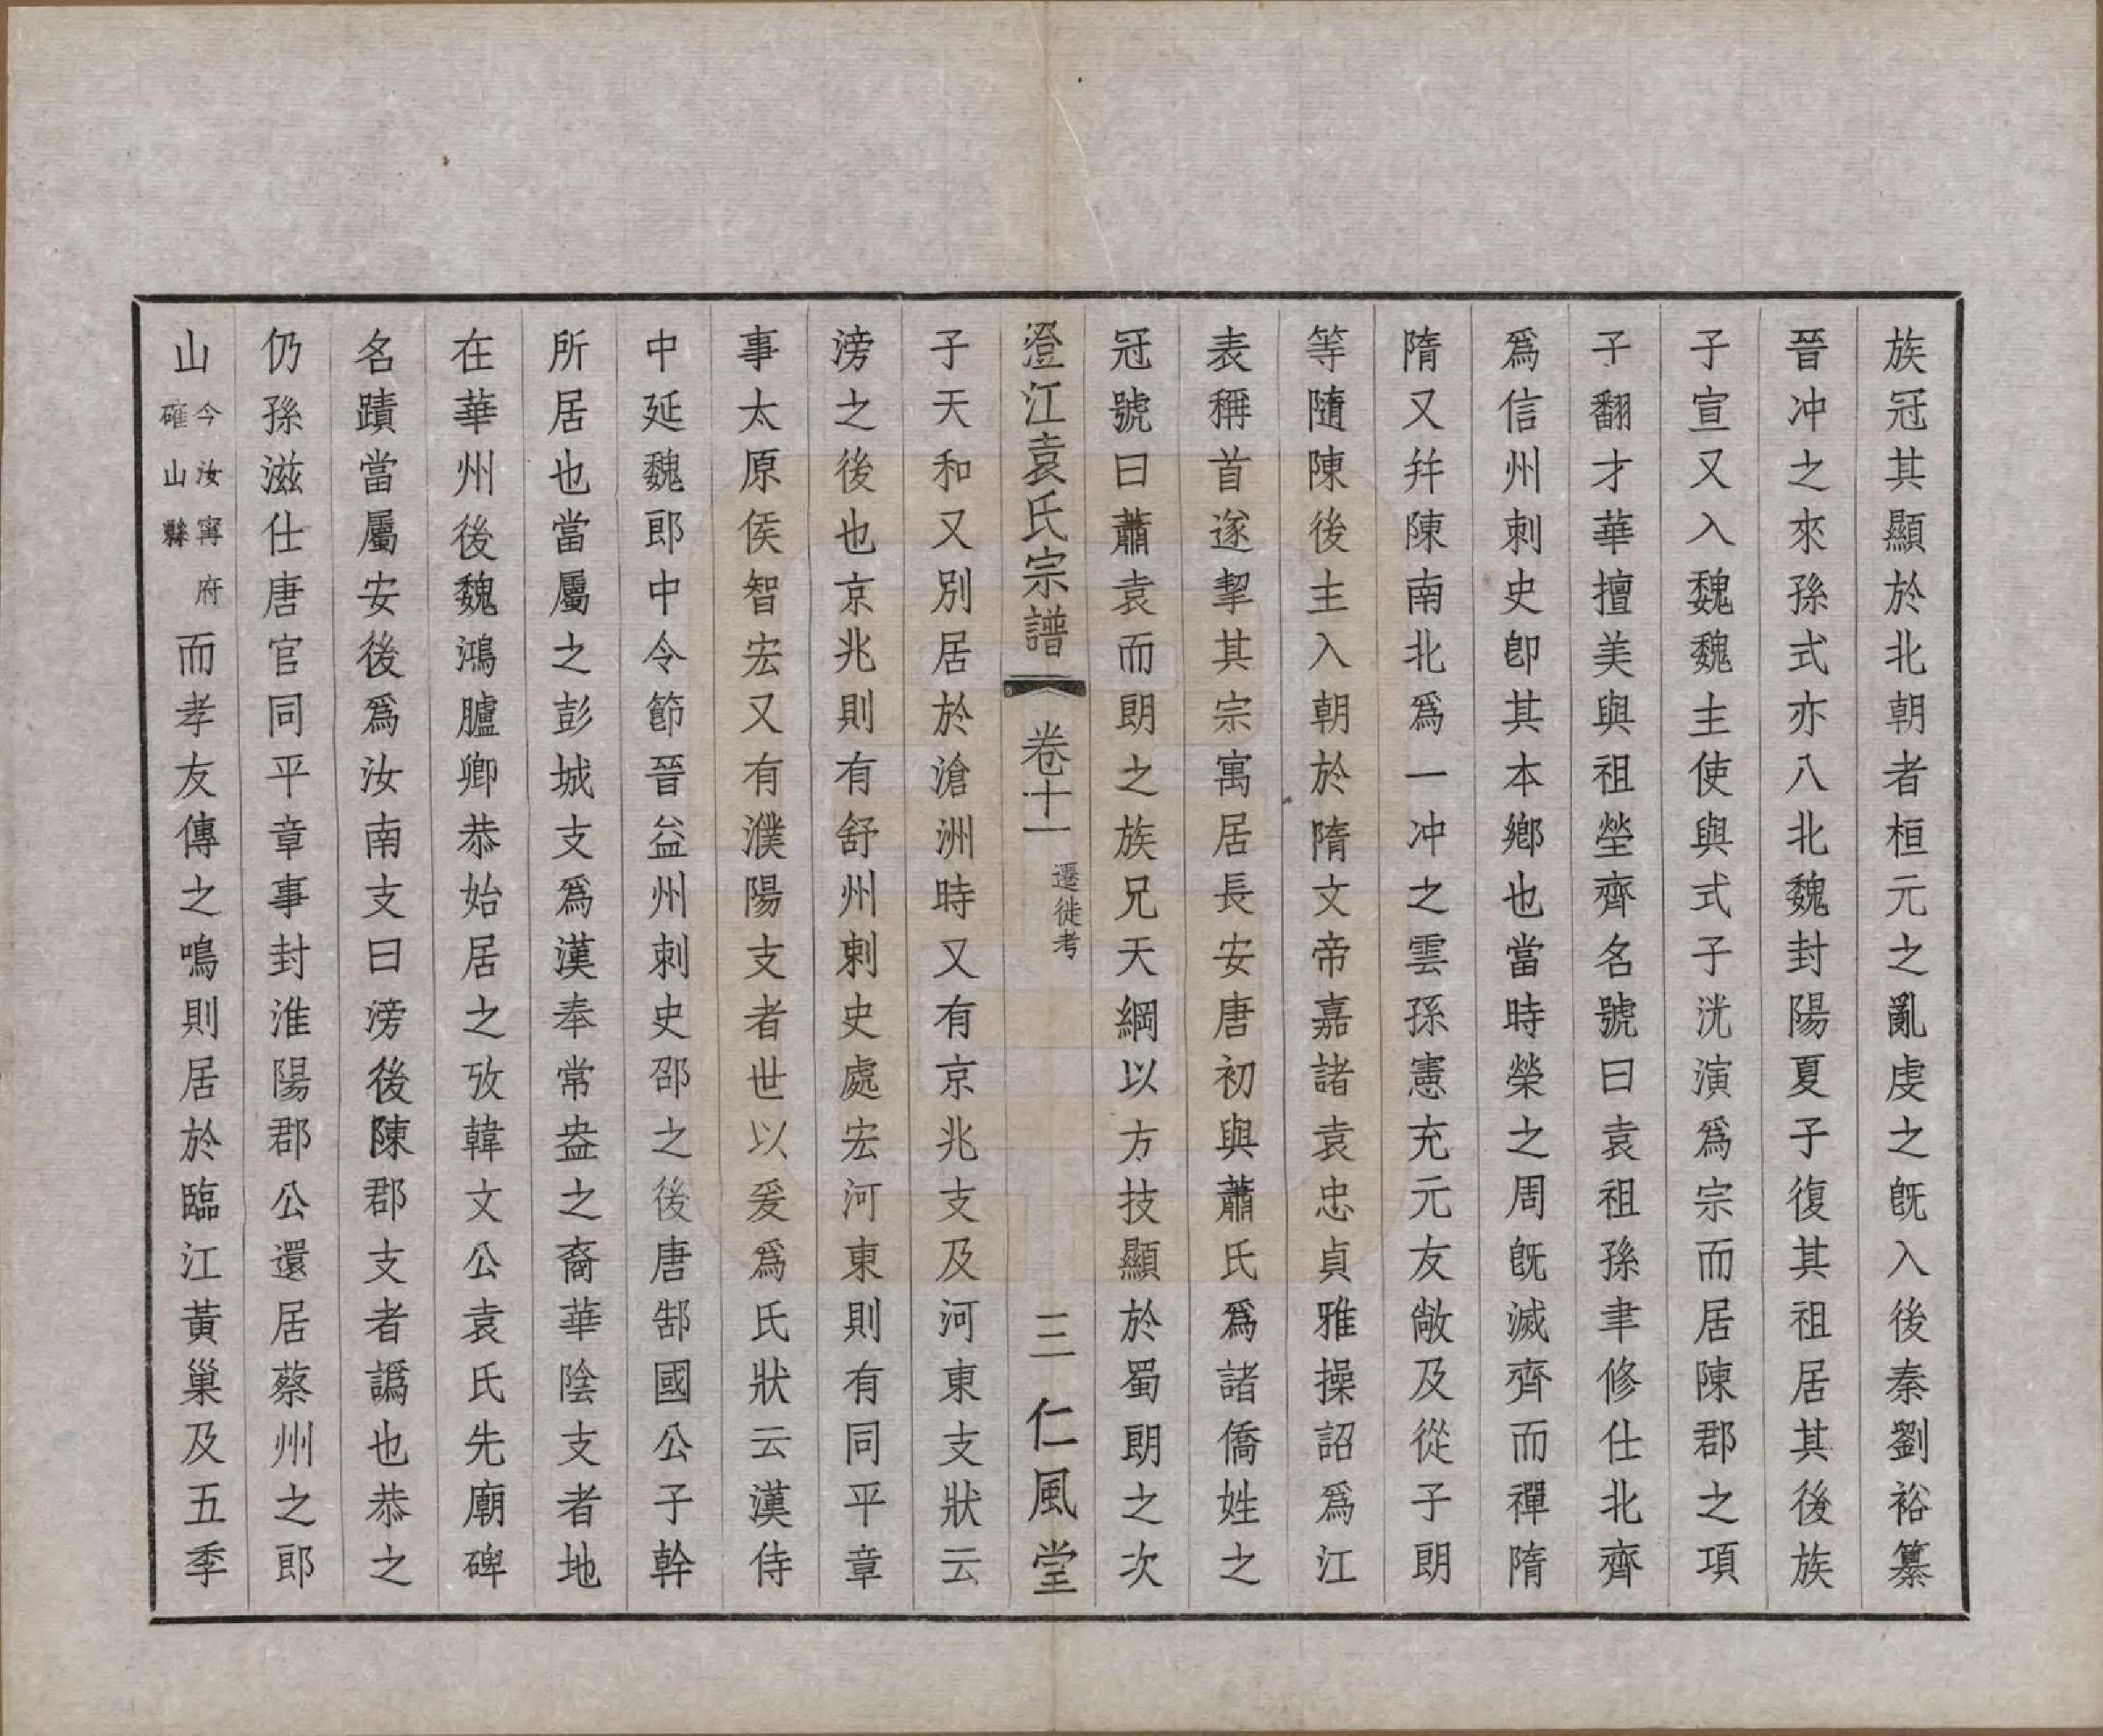 族冠其顯於北朝者桓元之亂虔之旣入後秦劉裕纂
晉冲之來孫式亦八北魏封陽夏子復其祖居其後族
子宣又入魏魏主使與式子洸演爲宗而居陳郡之項
子翻才華擅美與祖塋齊名號曰袁祖孫聿修仕北齊
爲信州刺史卽其本鄉也當時榮之周旣滅齊而禪隋
隋又并陳南北爲一冲之雲孫憲充元友敞及從子朗
等隨陳後主入朝於隋文帝嘉諸袁忠貞雅操詔爲江
表稱首遂挈其宗寓居長安唐初與蕭氏爲諸僑姓之
冠號曰蕭袁而朗之族兄天綱以方技顯於蜀朗之次
澄江袁氏宗譜 卷十一 遷徙考 三 仁風堂
子天和又別居於滄洲時又有京兆支及河東支狀云
滂之後也京兆則有舒州刺史處宏河東則有同平章
事太原侯智宏又有濮陽支者世以爰爲氏狀云漢侍
中延魏郎中令節晉益州刺史邵之後唐郜國公子幹
所居也當屬之彭城支爲漢奉常盎之裔華陰支者地
在華州後魏鴻臚卿恭始居之攷韓文公袁氏先廟碑
名蹟當屬安後爲汝南支曰滂後陳郡支者譌也恭之
仍孫滋仕唐官同平章事封淮陽郡公還居蔡州之郎
山今汝甯府確山縣而孝友傳之鳴則居於臨江黃巢及五季